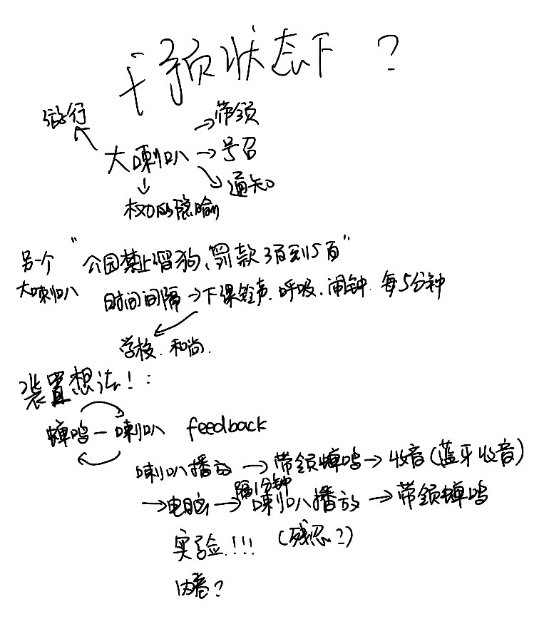 干预状态下 ?
游行
带领
大喇叭 → 号召
通知
权力的隐喻
另一个 "公园禁止遛狗、罚款3百到5百"
大喇叭 时间间隔 → 下课铃声. 呼吸. 闹钟. 每5分钟
学校. 和尚.
装置想法!:
蝉鸣 — 喇叭 feedback
喇叭播放 → 带领蝉鸣 → 收音(蓝牙收音)
隔1分钟
→ 电脑 → 喇叭播放 → 带领蝉鸣
实验.!!! (残忍?)